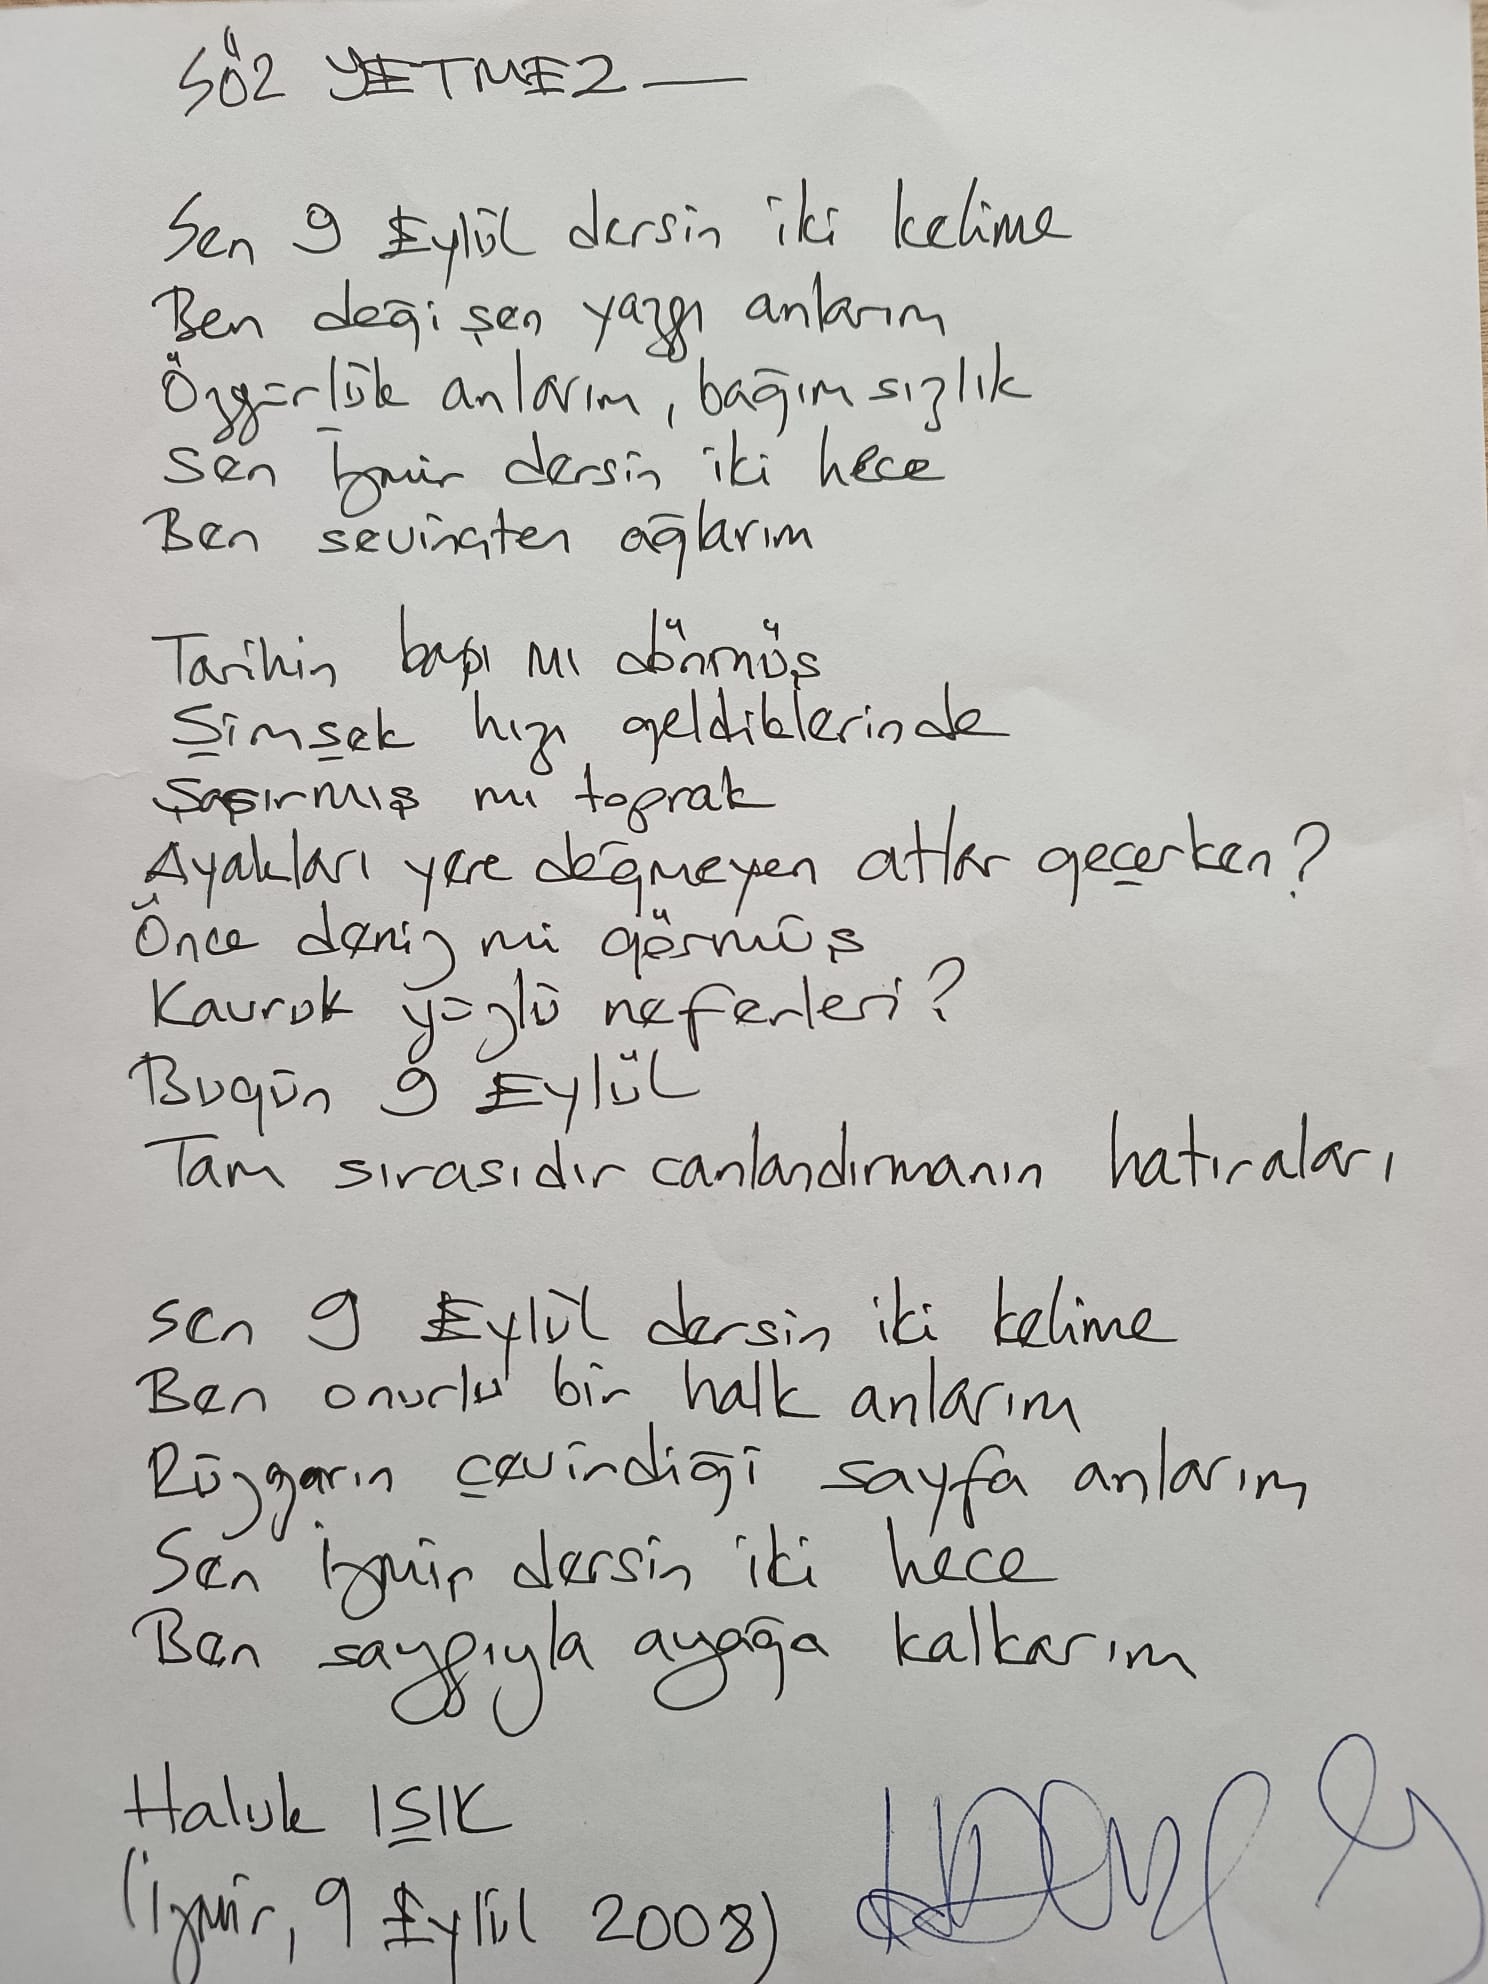 SÖZ YETMEZ —
Sen 9 Eylül dersin iki kelime
Ben değişen yazgı anlarım
Özgürlük anlarım, bağımsızlık
Sen İzmir dersin iki hece
Ben sevinçten ağlarım
Tarihin başı mı dönmüş
Şimşek hızı geldiklerinde
Şaşırmış mı toprak
Ayakları yere değmeyen atlar geçerken?
Önce deniz mi görmüş
Kavruk yüzlü neferleri?
Bugün 9 Eylül
Tam sırasıdır canlandırmanın hatıraları
Sen 9 Eylül dersin iki kelime
Ben onurlu bir halk anlarım
Rüzgarın çevirdiği sayfa anlarım
Sen İzmir dersin iki hece
Ben saygıyla ayağa kalkarım
Haluk IŞIK
(İzmir, 9 Eylül 2008)